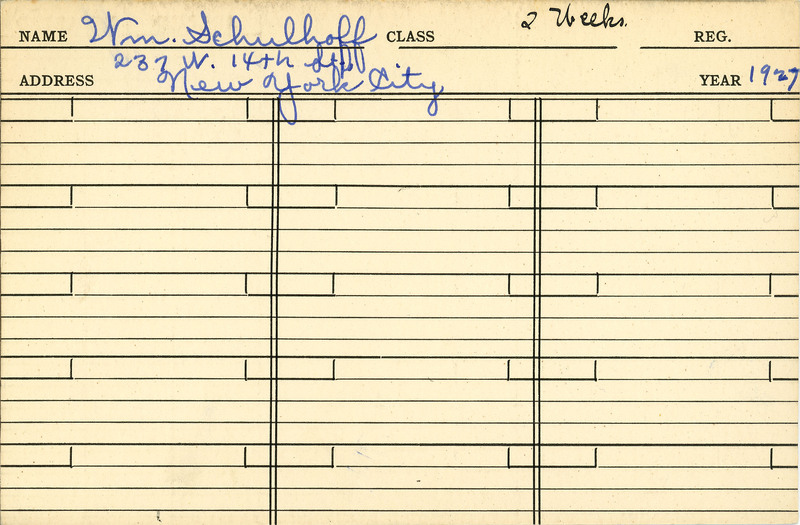 NAME Wm. Schulhoff CLASS 2 Weeks. REG.
237 W. 14th St
ADDRESS New York City YEAR 1927